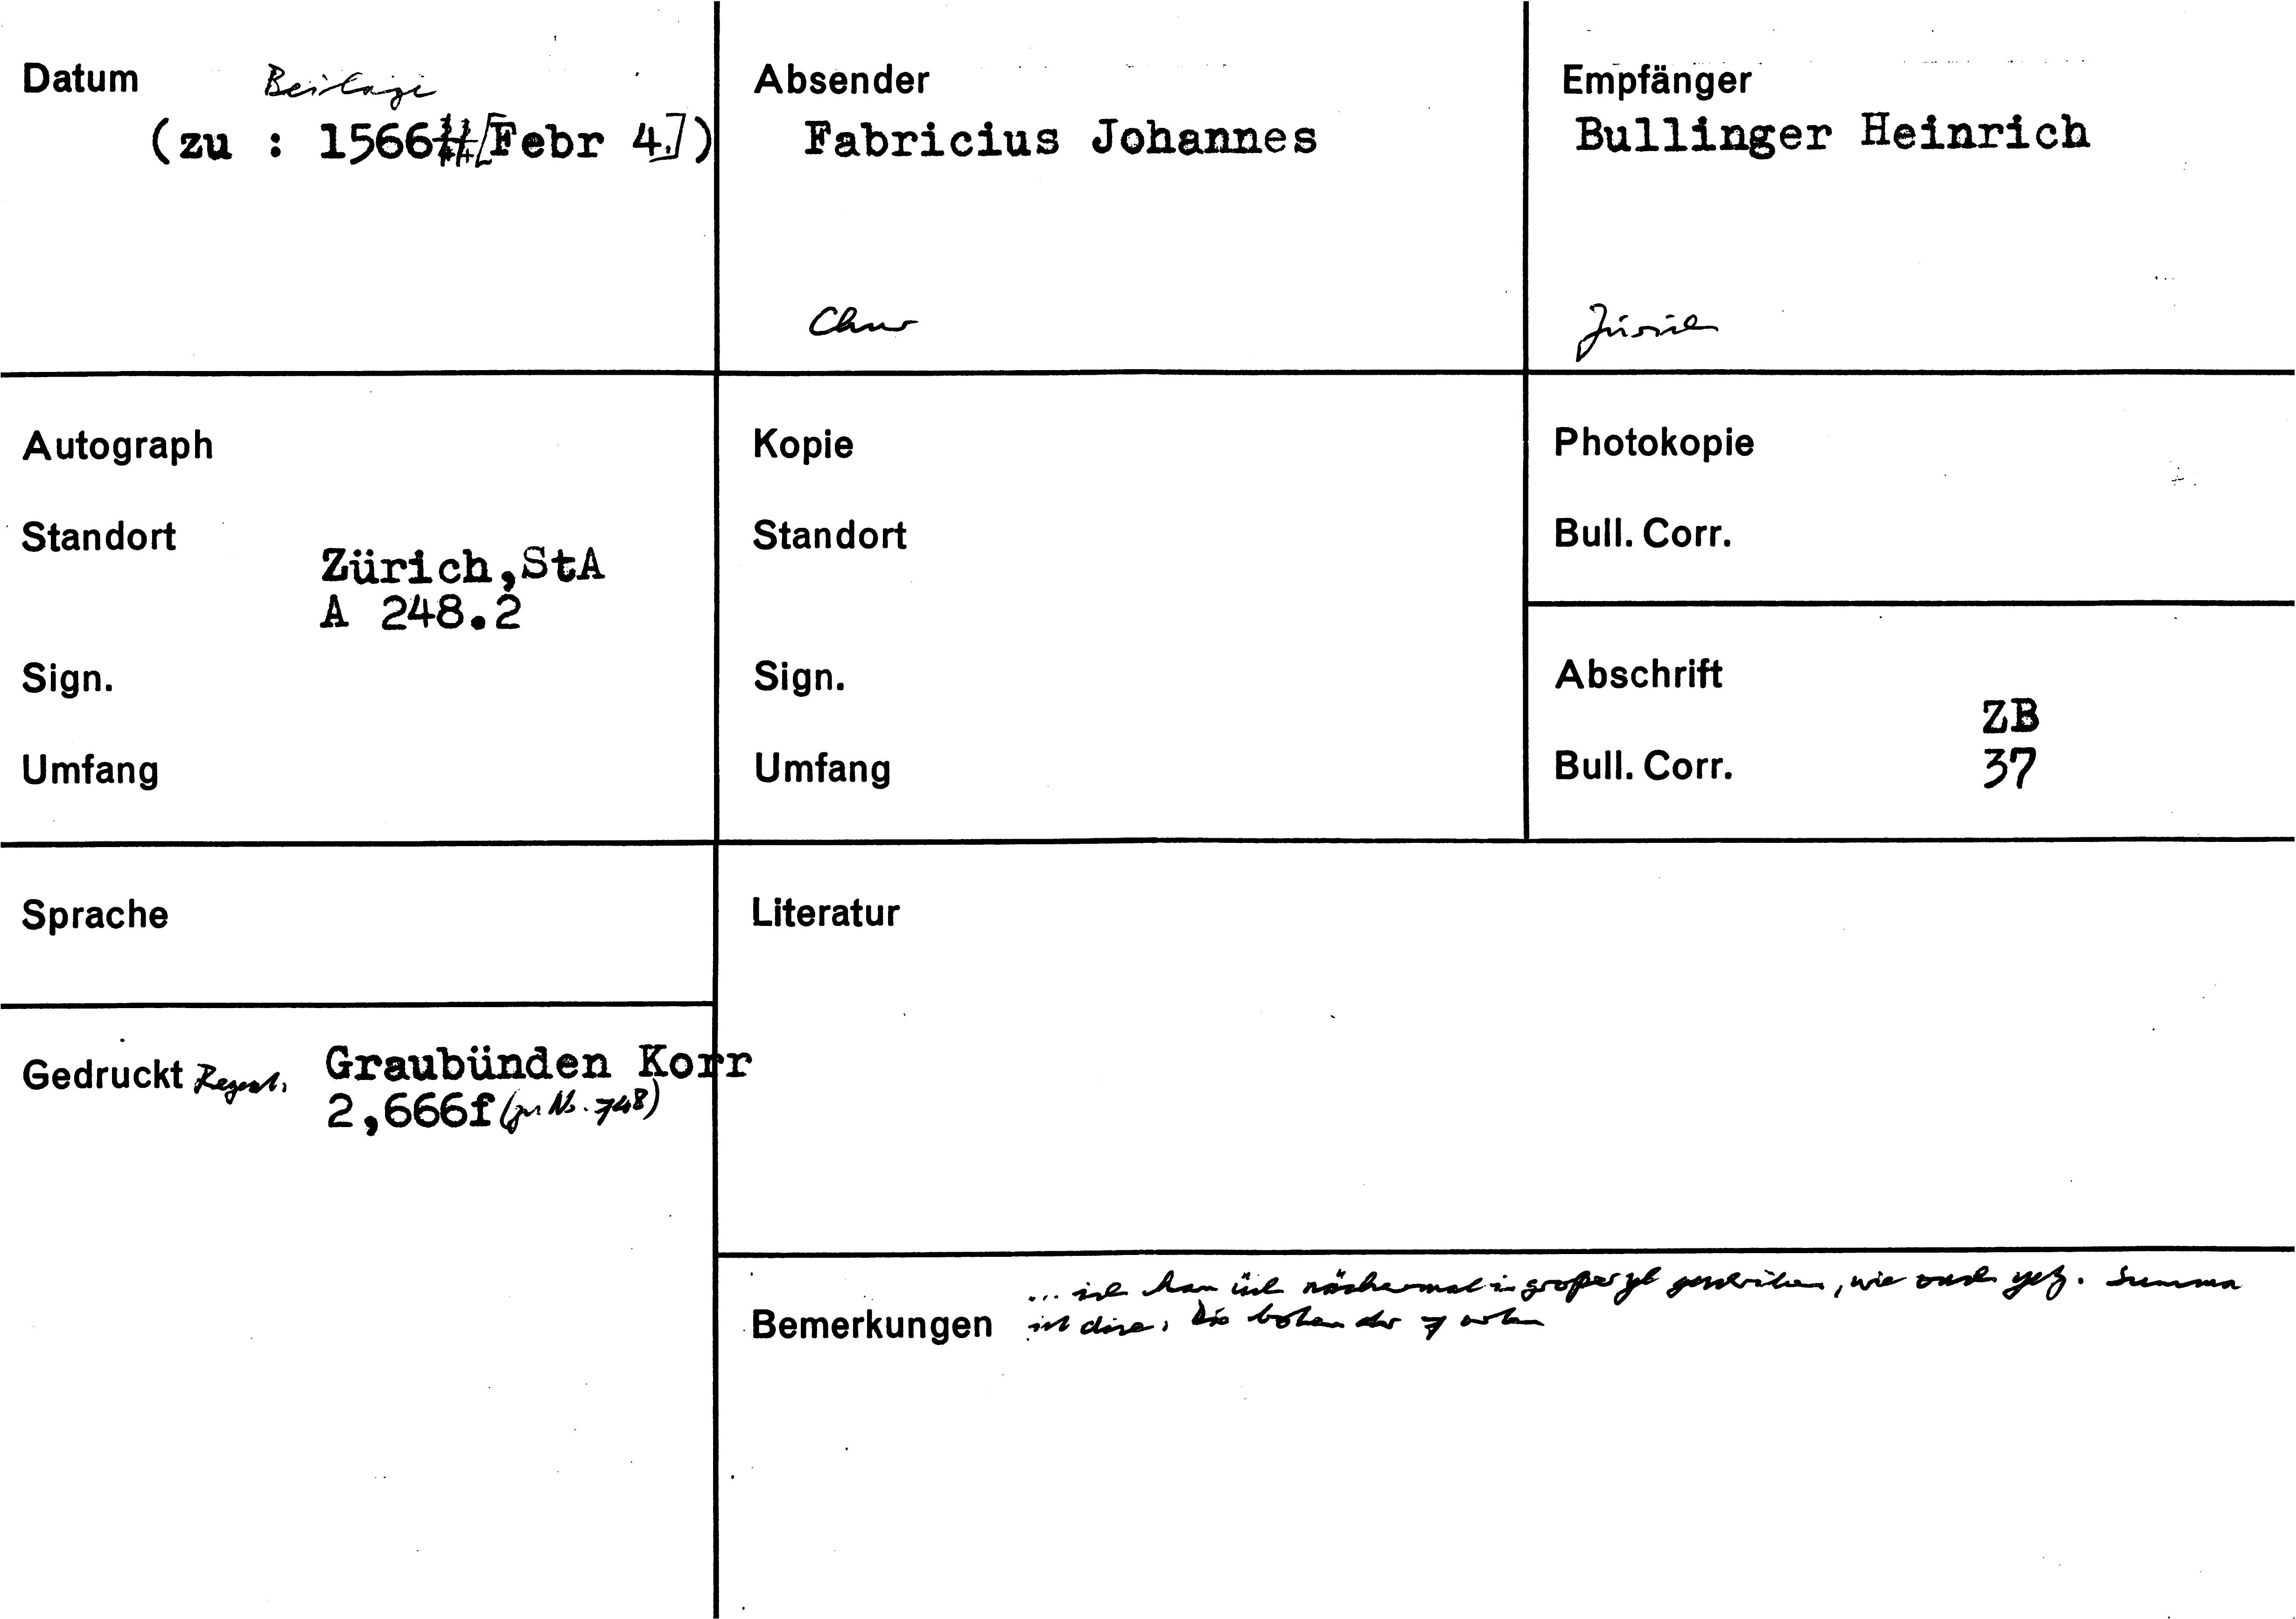 Datum
Beilage
(zu : 1566 [Febr 4.])
Absender
Fabricius Johannes
Chur
Empfänger
Bullinger Heinrich
Zürich
Autograph
Standort
Zürich,StA
A 248.2
Sign.
Umfang
Kopie
Standort
Sign.
Umfang
Photokopie
Bull. Corr.
Abschrift
ZB
Bull. Corr. 37
Sprache
Literatur
Gedruckt Regest. Graubünden Korr
2,666f (zu No. 748)
Bemerkungen
... ich han üch nächermal in großer yl geschriben, wie ouch yetz. Summa
ist dise: Die botten der 7 orten